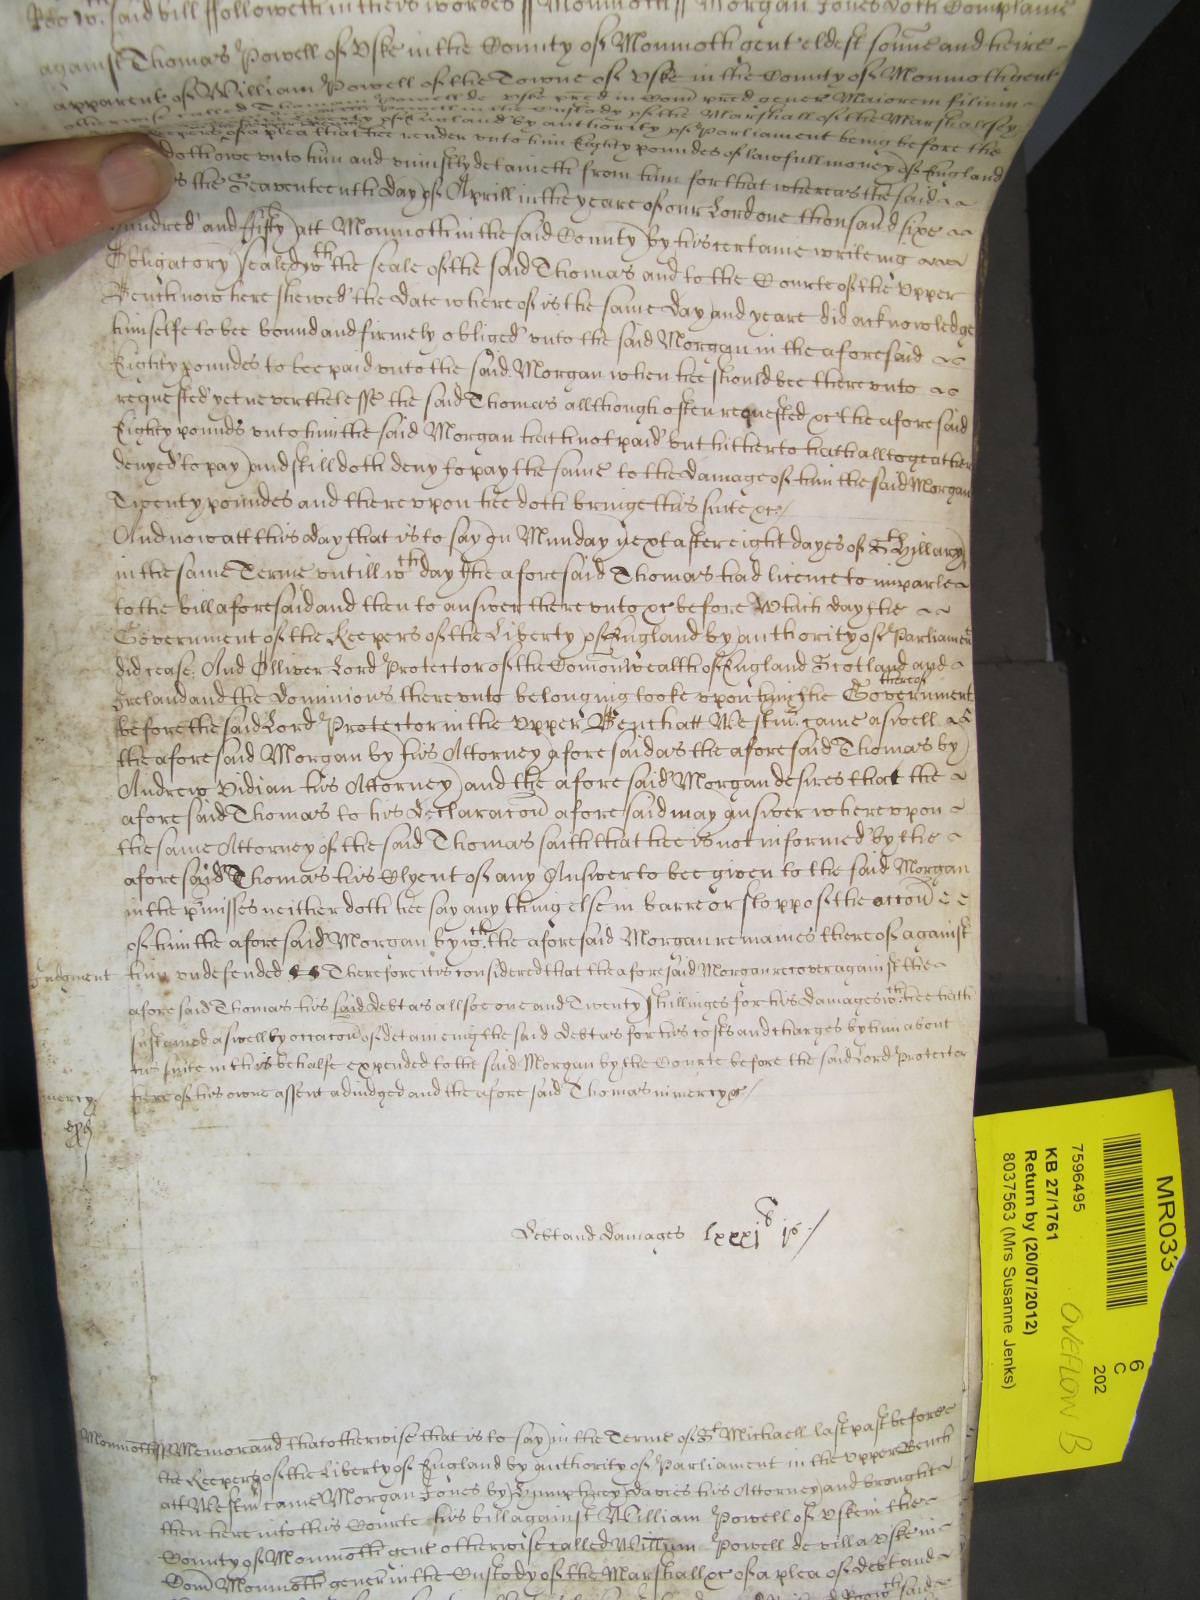 said bill followeth in theis wordes ss Monmoth ss Morgan Jones doth Complaine
against Thomas Powell of Vske in the County of Monmoth gent eldest sonne and heire
apparent of William Powell of the Towne of Vske in the County of Monmoth gent
otherwise called Thomam Powell de Vske pred in Com pred gener Maiorem filium
in the Custody of the Marshall of the Marshallsey
of England by authority of Parliament being before the
Keepers of a plea that hee render vnto him Eighty poundes of lawfull money of England
doth owe vnto him and vniustly detaineth from him for that whereas the said
the Seaventeenth day of Aprill in the yeare of our Lord one thousand sixe
hundred and fifty att Monmoth in the said County by his certaine writeing
Obligatory sealed wth the seale of the said Thomas and to the Courte of the Vpper
Bench now here shewed the date whereof is the same day and yeare did acknowledge
himselfe to bee bound and firmely obliged vnto the said Morgan in the aforesaid
Eighty poundes to bee paid vnto the said Morgan when hee should bee therevnto
requested yet neverthelesse the said Thomas allthough often requested &c the aforesaid
Eighty pounds vnto him the said Morgan hath not paid but hitherto hath alltogeather
denyed to pay and still doth deny to pay the same to the damage of him the said Morgan
Twenty poundes and therevpon hee doth bringe this suite &c
And now att this day that is to say on Munday next after eight dayes of St Hillary
in the same Terme vntill wth day the aforesaid Thomas had licence to imparle
to the bill aforesaid and then to answer therevnto &c before which day the
Government of the Keepers of the Liberty of England by authority of Parliament
did cease And Olliver Lord Protector of the Comonwealth of England Scotland and
Ireland and the Dominions therevnto belonging tooke vpon him the Government thereof
before the said Lord Protector in the Vpper Bench att Westm came aswell
the aforesaid Morgan by his Attorney aforesaid as the aforesaid Thomas by
Andrew Vidian his Attorney and the aforesaid Morgan desires that the
aforesaid Thomas to his declaracon aforesaid may answer wherevpon
the same Attorney of the said Thomas saith that hee is not informed by the
aforesaid Thomas his Clyent of any Answer to bee given to the said Morgan
in the pmisses neither doth hee say any thing else in barre or stopp of the accon
of him the aforesaid Morgan by wch the aforesaid Morgan remaines thereof against
Judgment him vndefended Therefore it is considered that the aforesaid Morgan recover against the
aforesaid Thomas his said debt as allsoe one and Twenty shillinges for his damages wch hee hath
susteyned aswell by occacon of detaineing the said debt as for his costs and charges by him about
his suite in this behalfe expended to the said Morgan by the Courte before the said Lord Protector
mercy here of his owne assent adiudged and the aforesaid Thomas in mercy &c
Debt and damages lxxxj js
Monmoth ss Memorand that otherwise that is to say in the Terme of St Michaell last past before
the Keepers of the Liberty of England by authority of Parliament in the Vpper Bench
att Westm came Morgan Jones by Humphrey Davies his Attorney and brought
then here into this Courte his bill against William Powell of Vske in the
County of Monmoth gent otherwise called Willum Powell de villa Vske in
Com Monmoth gener in the Custody of the Marshall &c of a plea of debt and
MR033
6
C
202
7596495
KB 27/1761
Return by (20/07/2012)
8037563 (Mrs Susanne Jenks)
OVEFLOW B